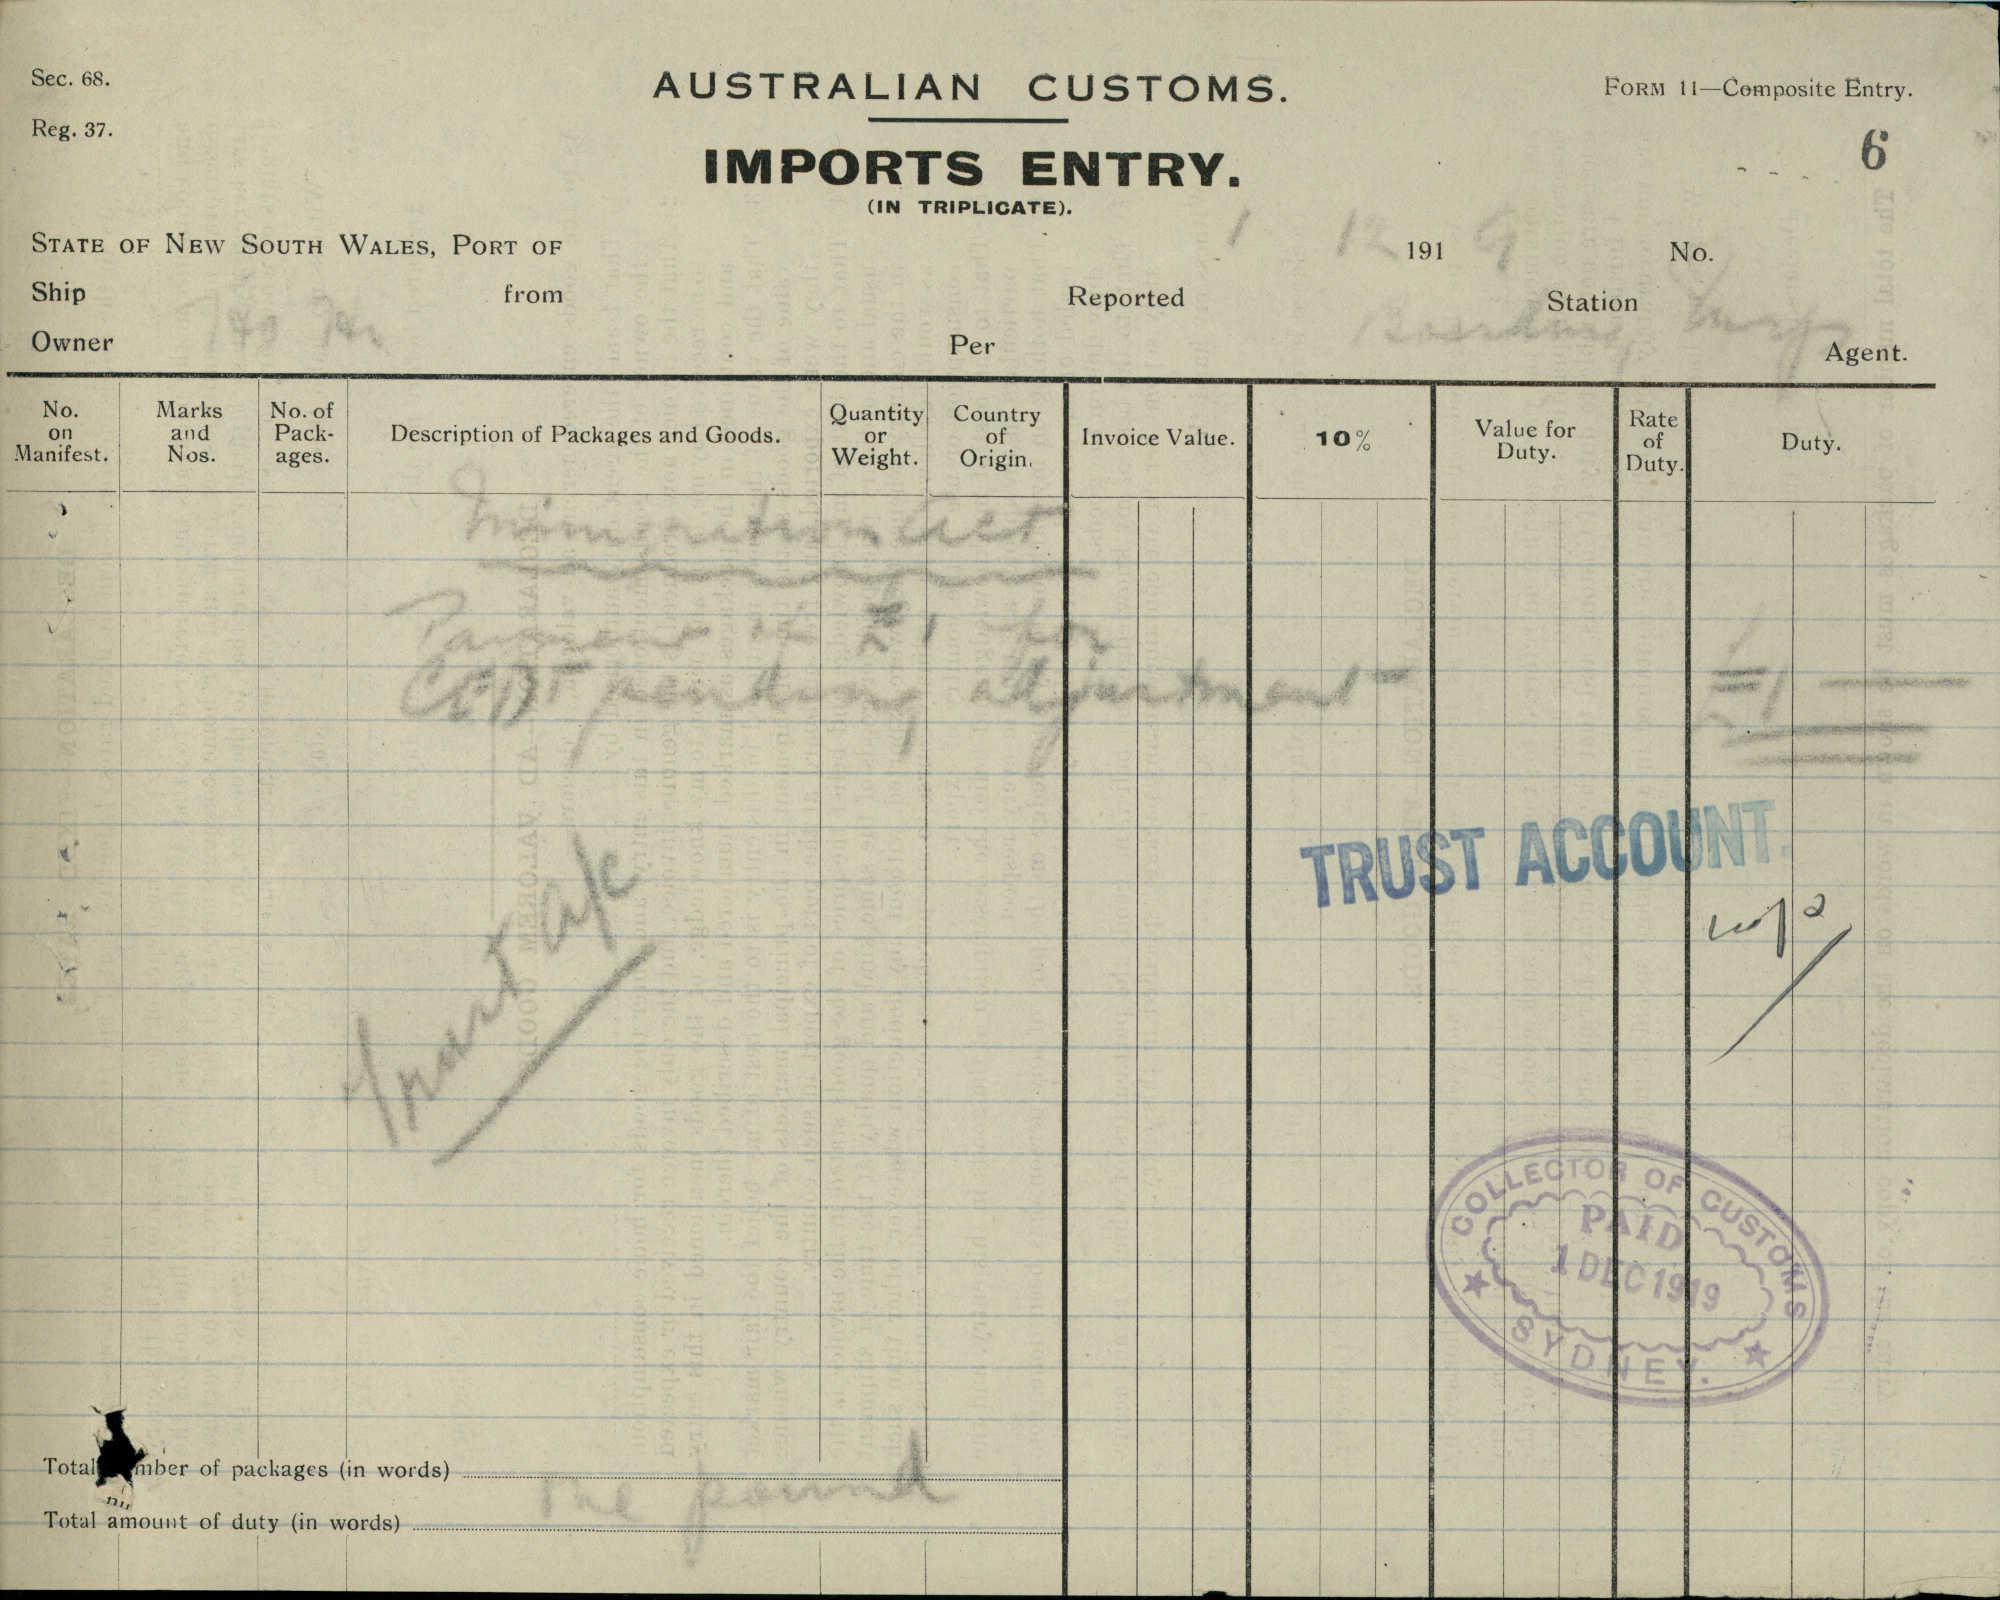 Sec. 68.
AUSTRALIAN CUSTOMS.
FORM 11—Composite Entry.
Reg. 37.
6
IMPORTS ENTRY.
(IN TRIPLICATE).
STATE OF NEW SOUTH WALES, PORT OF
1 12 1919 No.
Ship from Reported Station
Owner Per Boarding Agent.
No. on Manifest.
Marks and Nos.
No. of Pack-ages.
Description of Packages and Goods.
Quantity or Weight.
Country of Origin.
Invoice Value.
10%
Value for Duty.
Rate of Duty.
Duty.
Immigration Act
Payment of £1 for
CEDT pending adjustment £1
TRUST ACCOUNT.
Trust a/c
COLLECTOR OF CUSTOMS
PAID
1 DEC 1919
SYDNEY.
Total mber of packages (in words)
One pound
Total amount of duty (in words)